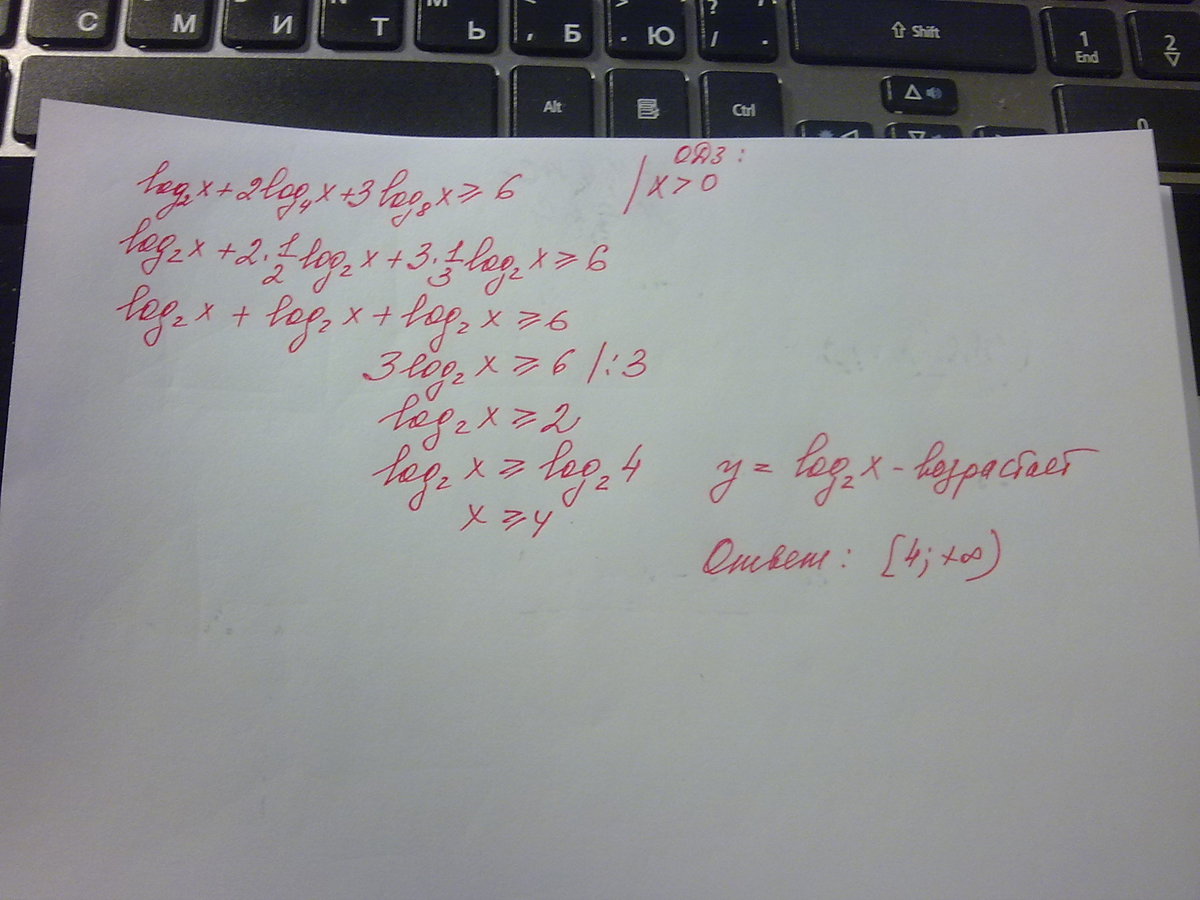 С М И Т Ь , Б . Ю ? / . ⇧ Shift 1 End 2
Alt Ctrl
log₂x+2log₄x+3log₈x≥6
ОДЗ:
x>0
log₂x+2·1/2log₂x+3·1/3log₂x≥6
log₂x+log₂x+log₂x≥6
3log₂x≥6 /:3
log₂x≥2
log₂x≥log₂4
y=log₂x-возрастает
x≥4
Ответ: [4;+∞)